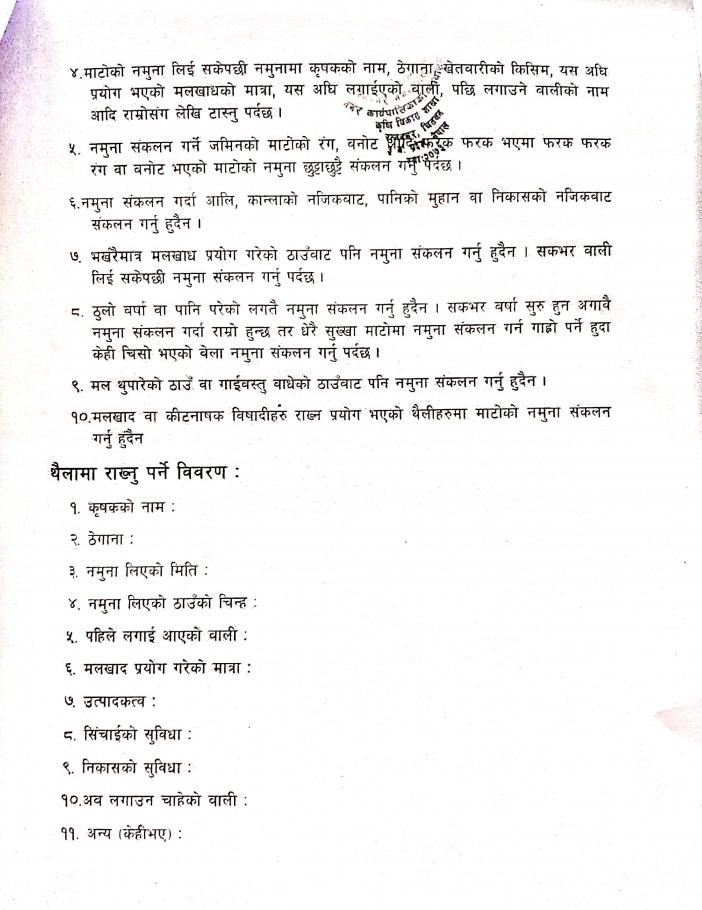 ४.माटोको नमुना लिई सकेपछी नमुनामा कृषकको नाम, ठेगाना, खेतवारीको किसिम, यस अघि
प्रयोग भएको मलखाधको मात्रा, यस अघि लगाईएको वाली, पछि लगाउने वालीको नाम
आदि राम्रोसंग लेखि टास्नु पर्दछ ।
कृषि विकास शाखा
५. नमुना संकलन गर्ने जमिनको माटोको रंग, वनोट आदि फरक फरक भएमा फरक फरक
रंग वा वनोट भएको माटोको नमुना छुट्टाछुट्टै संकलन गर्नु पर्दछ ।
६.नमुना संकलन गर्दा आलि, कान्लाको नजिकवाट, पानिको मुहान वा निकासको नजिकवाट
संकलन गर्नु हुदैन ।
७. भर्खरैमात्र मलखाध प्रयोग गरेको ठाउँवाट पनि नमुना संकलन गर्नु हुदैन । सकभर वाली
लिई सकेपछी नमुना संकलन गर्नु पर्दछ ।
८. ठुलो वर्षा वा पानि परेको लगतै नमुना संकलन गर्नु हुदैन । सकभर वर्षा सुरु हुन अगावै
नमुना संकलन गर्दा राम्रो हुन्छ तर धेरै सुख्खा माटोमा नमुना संकलन गर्न गाह्रो पर्ने हुदा
केही चिसो भएको बेला नमुना संकलन गर्नु पर्दछ ।
९. मल थुपारेको ठाउँ वा गाईवस्तु वाधेको ठाउँवाट पनि नमुना संकलन गर्नु हुदैन ।
१०.मलखाद वा कीटनाषक विषादीहरु राख्न प्रयोग भएको थैलीहरुमा माटोको नमुना संकलन
गर्नु हुदैन
थैलामा राख्नु पर्ने विवरण :
१. कृषकको नाम :
२. ठेगाना :
३. नमुना लिएको मिति :
४. नमुना लिएको ठाउँको चिन्ह :
५. पहिले लगाई आएको वाली :
६. मलखाद प्रयोग गरेको मात्रा :
७. उत्पादकत्व :
८. सिंचाईको सुविधा :
९. निकासको सुविधा :
१०.अव लगाउन चाहेको वाली :
११. अन्य (केहीभए) :